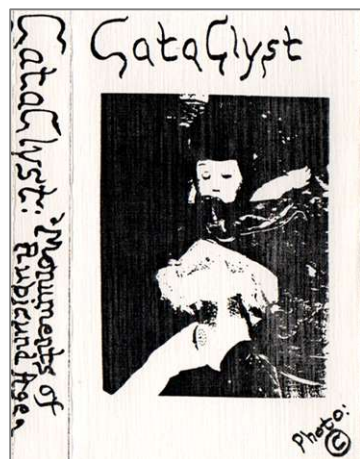 CataClyst
CataClyst: 'Monuments of
Rubicund
Photo:
©